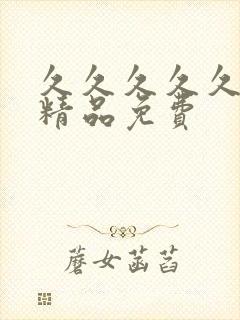 久久久久久
精品免費
蘑女菡萏